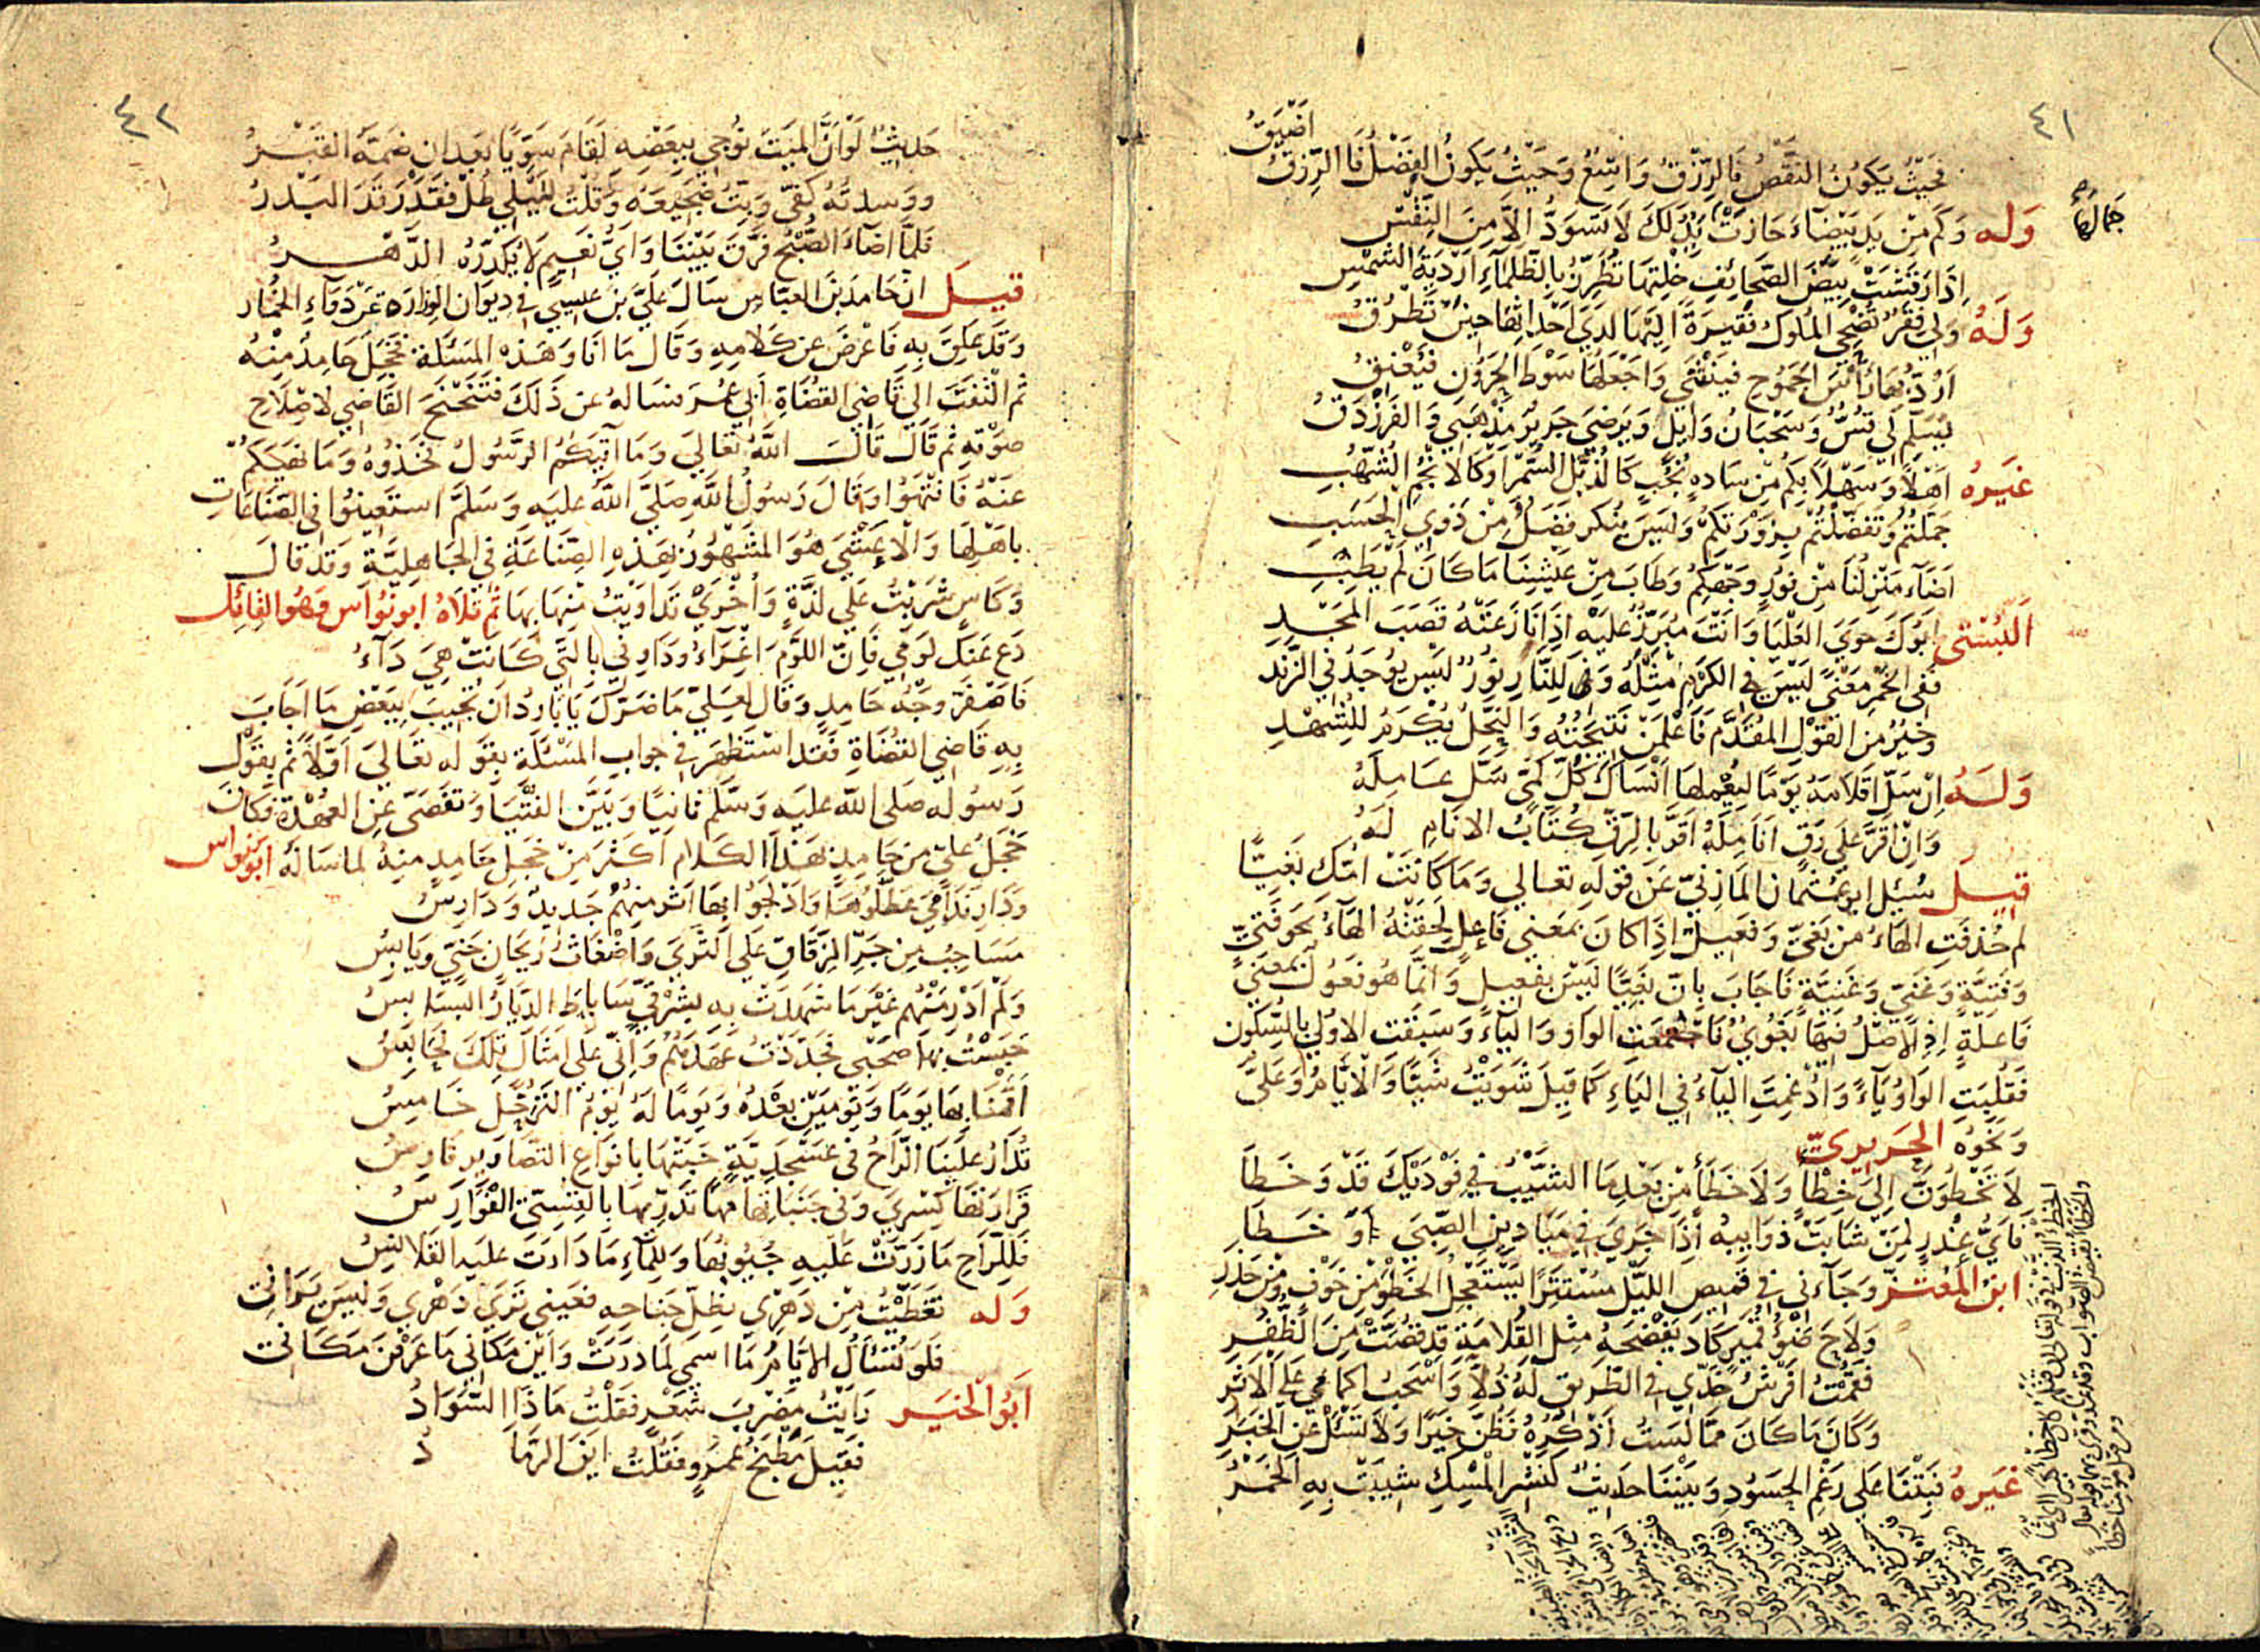 ٤١
اضيق
فحيث يكون النقص فالرزق واسع وحيث يكون الفضل فالرزق
جمالها
وله وكم من يد بيضاء حازت بذلك لا تسود الا من النقس
اذا رقشت بيض الصحائف خلتها تطرز بالظلماء اردية الشمس
وله ولي فقر تضحي الملوك فقيرة اليها لدي احداثها حين تطرق
ارد بها رأس الجموح فينثني واجعلها سوط الحرون فيعنق
يسلم لي قس وسحبان وايل ويرضي جرير مذهبي والفرزدق
غيره اهلا وسهلا بكم من ساده نجب كالذبل السمر او كالانجم الشهب
جملتم وتفضلتم بزورتكم وليس ينكر فضل من ذوي الحسب
اضاء منزلنا من نور وجهكم وطاب من عيشنا ما كان لم يطب
البستى ابوك حوي العليا وانت مبرز عليه اذا نازعته قصب المجد
ففي الخمر معني ليس في الكرم مثله وفي النار نور ليس يوجد في الزند
وخير من القول المقدم فاعلمن نتيجته والنحل يكرم للشهد
وله ان سل اقلامه يوما ليعملها انساك كل كمي سل عامله
وان اقر علي رق انامله اقر بالرق كتاب الانام له
قيل سئل ابو عثمان المازني عن قوله تعالي وما كانت امك بغيا
لم حذفت الهاء من بغي وفعيل اذا كان بمعني فاعل لحقته الهاء نحو فتي
وفتية وغني وغنية فاجاب بان بغيا ليس بفعيل وانما هو فعول بمعني
فاعلة اذ الاصل فيها بغوي فاجتمعت الواو والياء وسبقت الاولي بالسكون
فقلبت الواو ياء وادغمت الياء في الياء كما قيل شويت شيا والايام وعلي
ونحوه الحريري
لا تخطون الي خطأ ولا خطأ من بعد ما الشيب في فوديك قد وخطا
فاي عذر لمن شابت ذوايبه اذا جري في ميادين الصبي او خطا
ابن المعتز وجآءني في قميص الليل مستترا يستعجل الخطو من خوف ومن حذر
ولاح ضوء قمير كاد يفضحه مثل القلامة قد قصت من الظفر
فقمت افرش خدي في الطريق له ذلا واسحب اكمامي علي الاثر
وكان ما كان مما لست اذكره فظن خيرا ولا تسئل عن الخبر
غيره نبتنا علي رغم الحسود وبيننا حديث كنشر المسك شيبت به الخمر
٤٢
حديث لو ان الميت نوجي ببعضه لقام سويا بعد ان ضمه القبر
ووسدته كفي وبت ضجيعه وقلت لليلي طل فقد رقد البدر
فلما اضاء الصبح فرق بيننا واي نعيم لا يكدره الدهر
قيل ان حامد بن العباس سال علي بن عيسي في ديوان الوزاره عن دواء الخمار
وقد علق به فاعرض عن كلامه وقال ما انا وهذه المسئلة فخجل حامد منه
ثم التفت الي قاضي القضاة ابي عمر فساله عن ذلك فتنحنح القاضي لاصلاح
صوته ثم قال قال الله تعالي وما آتيكم الرسول فخذوه وما نهيكم
عنه فانتهوا وقال رسول الله صلي الله عليه وسلم استعينوا في الصناعات
باهلها والاعشي هو المشهور بهذه الصناعة في الجاهلية وقد قال
وكاس شربت علي لذة واخري تداويت منها بها ثم تلاه ابو نواس وهو القائل
دع عنك لومي فان اللوم اغراء وداوني بالتي كانت هي دآء
فاصفر وجه حامد وقال لعلي ما ضرك يا بارد ان تجيب ببعض ما اجاب
به قاضي القضاة فقد استظهر في جواب المسئلة بقوله تعالي اولا ثم بقول
رسوله صلى الله عليه وسلم ثانيا وبين الفتيا وتفصى عن العهدة فكان
خجل علي من حامد بهذا الكلام اكثر من خجل حامد منه لما ساله ابو نواس
ودار ندامي عطلوها وادلجوا بها اثر منهم جديد ودارس
مساحب من جر الزقاق علي الثري واضغاث ريحان جني ويابس
ولم ادر منهم غير ما شهدت به بشرقي ساباط الديار البسابس
حبست بها صحبي فجددت عهدهم واني علي امثال تلك لحابس
اقمنا بها يوما ويومين بعده ويوما له يوم الترحل خامس
تدار علينا الراح في عسجدية حبتها بانواع التصاوير فارس
قرارتها كسري وفي جنباتها مها تدريها بالقسي الفوارس
فللراح ما زرت عليه جيوبها وللماء ما دارت عليه القلانس
وله تغطيت من دهري بظل جناحه فعيني تري دهري وليس يراني
فلو تسأل الايام ما اسمي لما درت واين مكاني ما عرفن مكاني
ابو الخير رايت مضرب شعر فقلت ماذا السواد
فقيل مطبخ عمرو فقلت اين الرماد